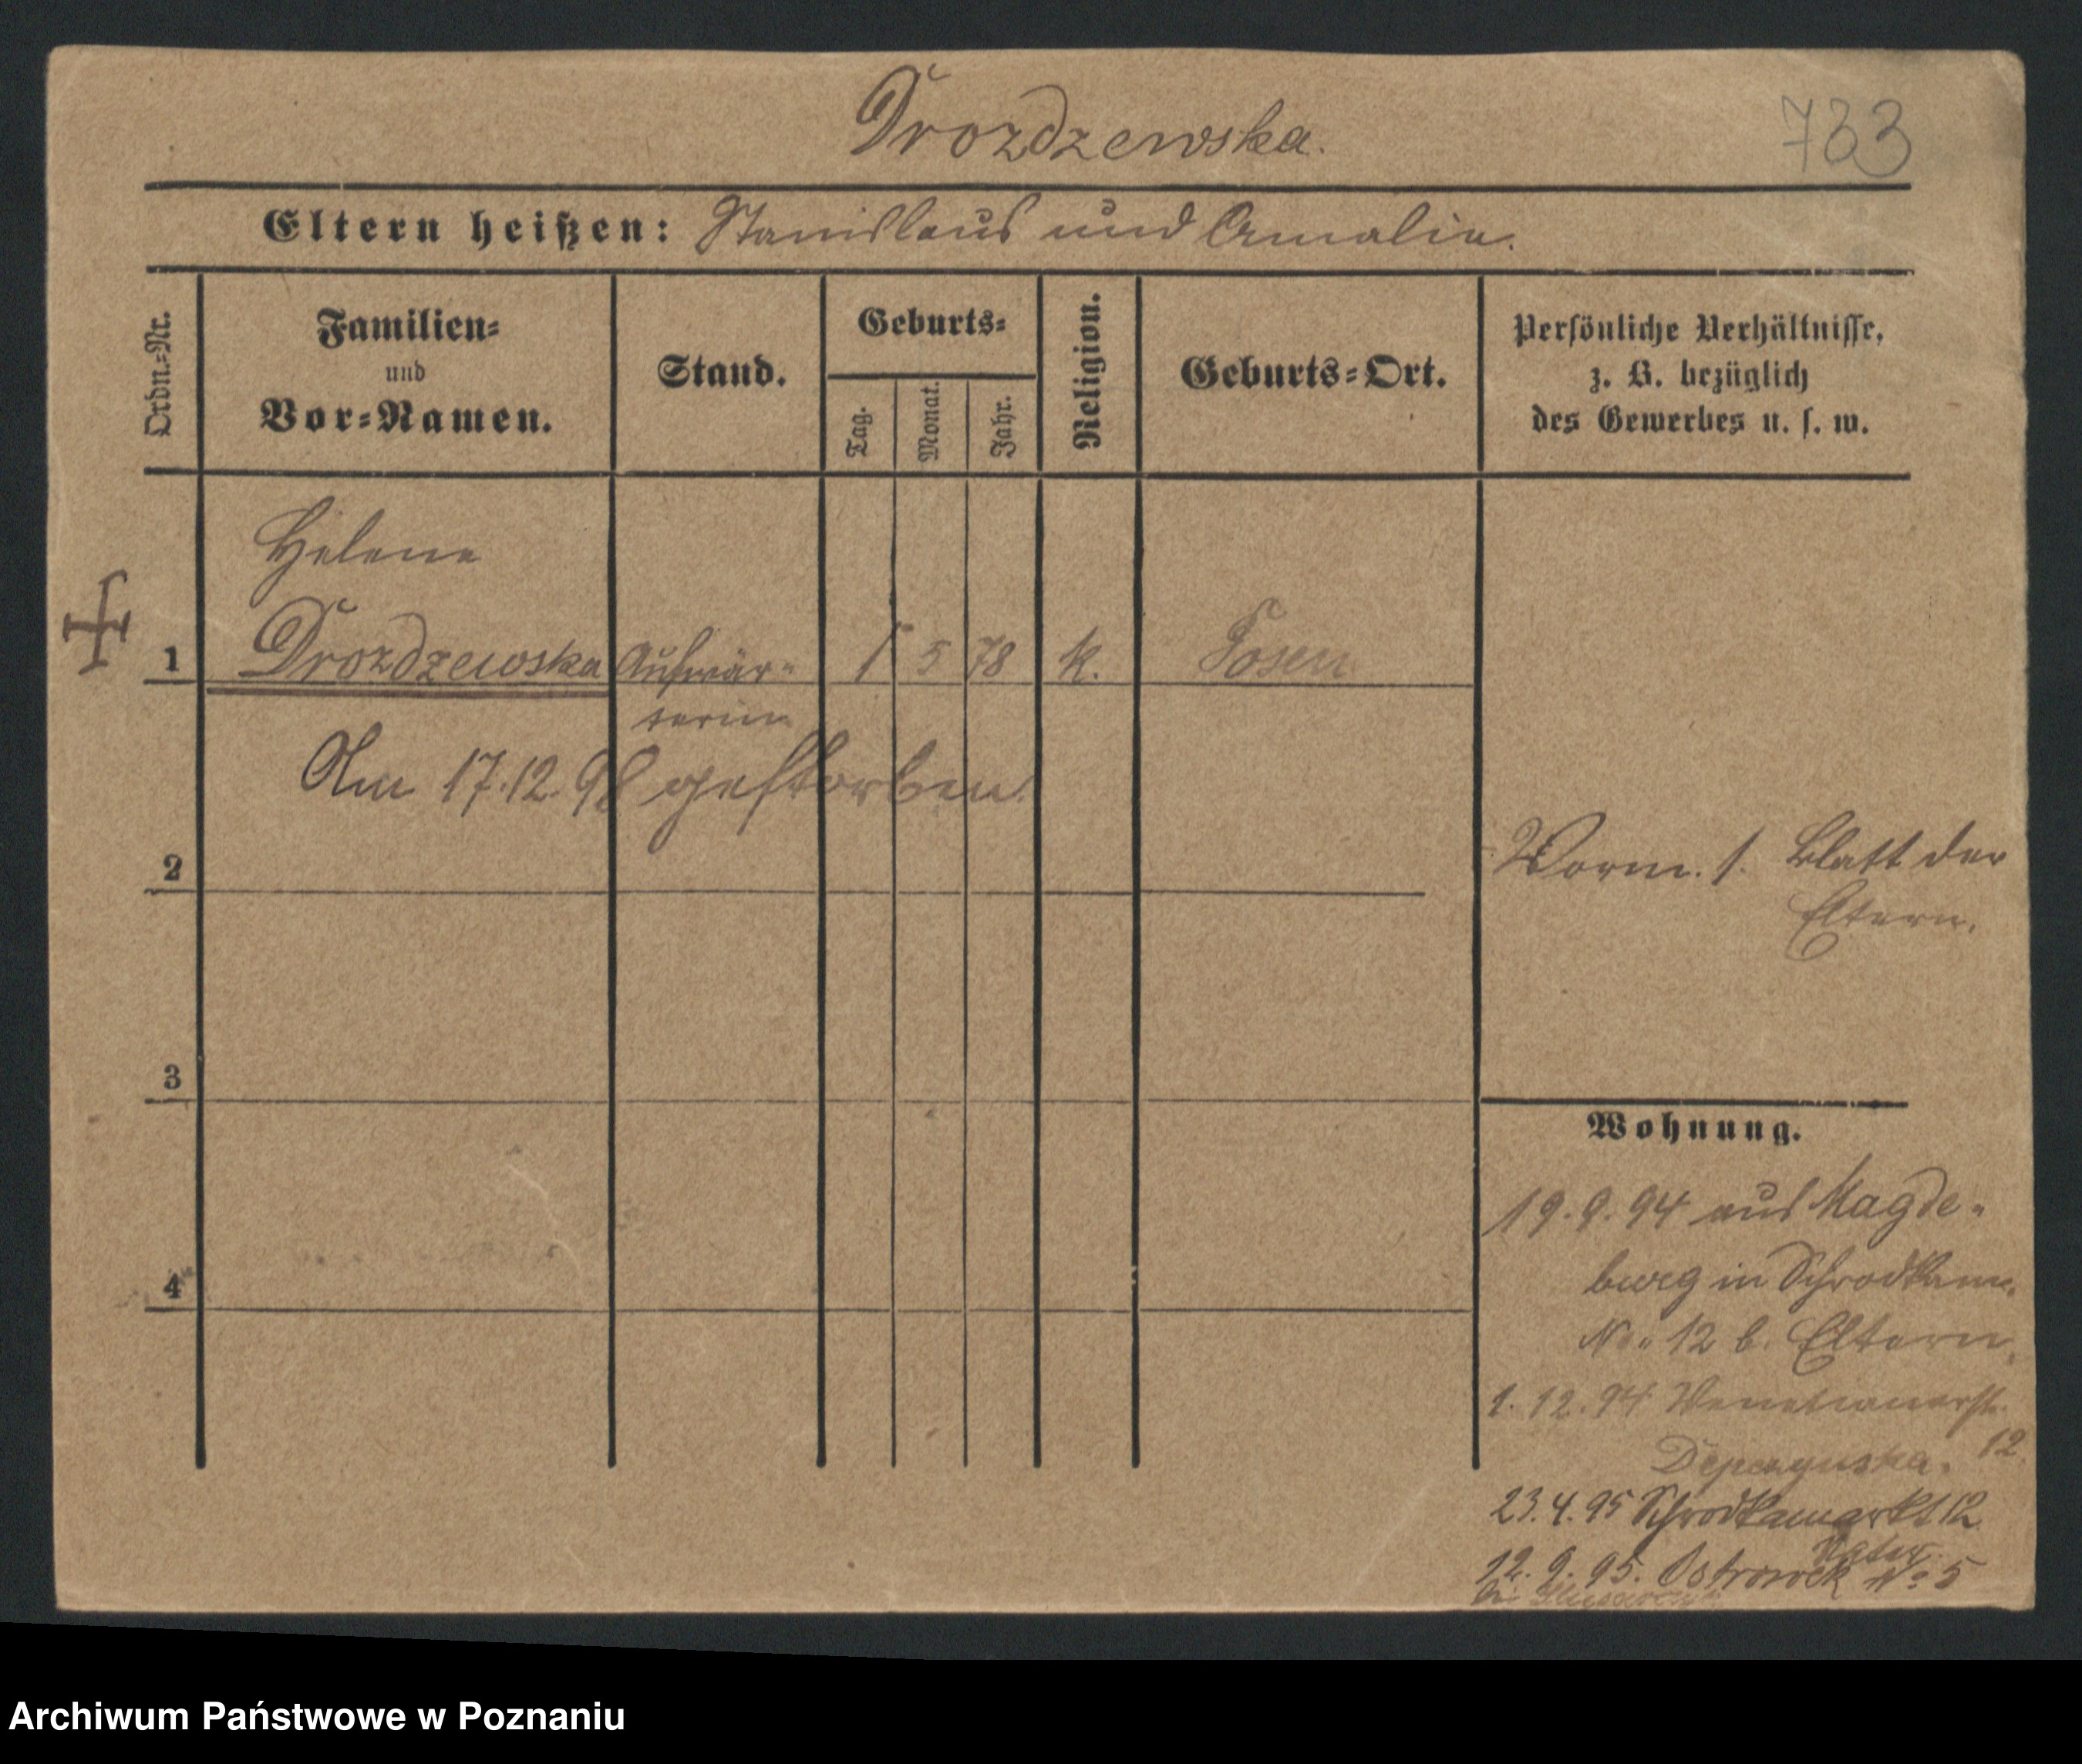 Drozdzewska.
733
Eltern heißen: Stanislaus und Amalie.
Ordn.=Nr.
Familien=
und
Vor=Namen.
Stand.
Geburts=
Tag.
Monat.
Jahr.
Religion.
Geburts=Ort.
Persönliche Verhältnisse,
z. B. bezüglich
des Gewerbes u. s. w.
Helene
1 Drozdzewska Aufwär= 1 5 78 k. Posen
terin
Am 17.12.98 gestorben.
2
Vorm. s. Blatt der
Eltern.
3
Wohnung.
19.9.94 aus Magde=
burg in Schrodkam.
4
No. 12 b. Eltern.
1.12.94 Venetianerst.
12.
23.4.95 Schrodkamarkt 12
Vater.
12.9.95. Ostrowek No 5
bei
Archiwum Państwowe w Poznaniu